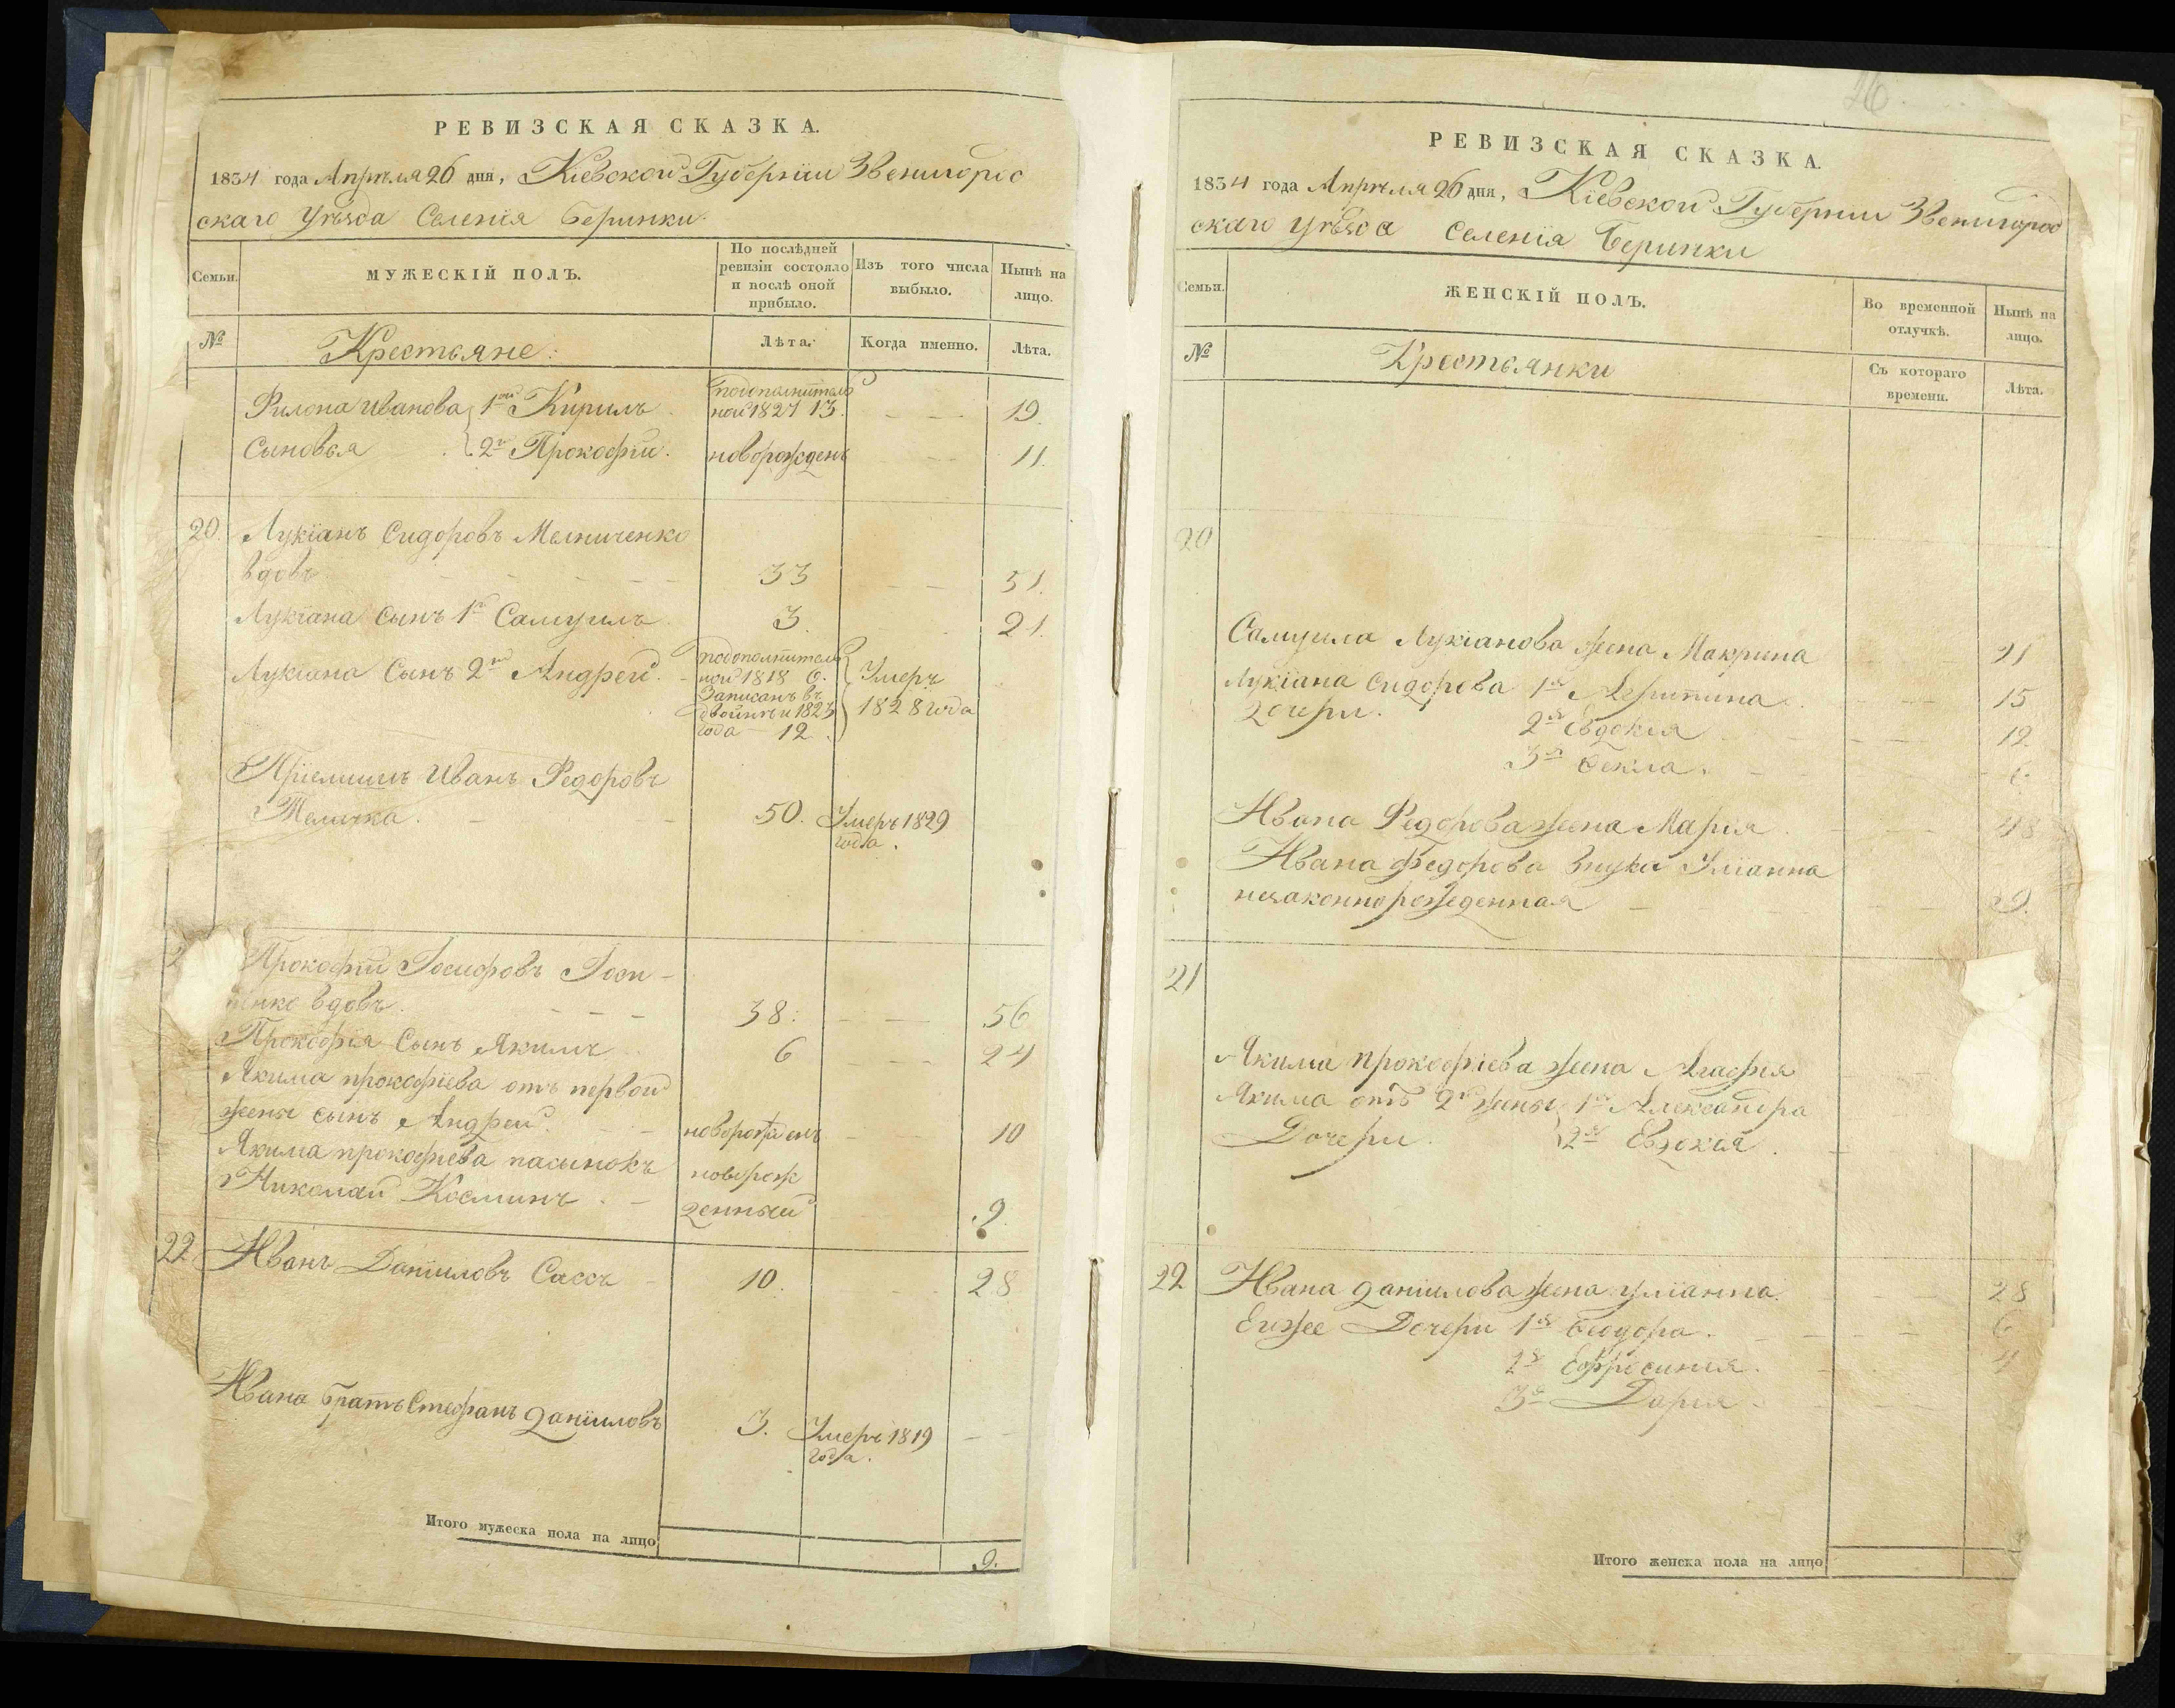 РЕВИЗСКАЯ СКАЗКА.
1834 года Апрѣля 26 дня, Кіевской Губерніи Звенигород
скаго Уѣзда Селенія Беринки
Семьи.
МУЖЕСКІЙ ПОЛЪ.
По послѣдней
ревизіи состояло
и послѣ оной
прибыло.
Изъ того числа
выбыло.
Нынѣ на
лицо.
№
Крестьяне:
Лѣта.
Когда именно.
Лѣта.
Филона Иванова 1ой Кирилъ подополнитель
ной 1827 13. 19.
Сыновья 2й Прокофій. новорожденъ 11.
20. Лукіанъ Сидоровъ Мелниченко
вдовъ 33 51.
Лукіана сынъ 1й Самуилъ 3. 21.
Лукіана Сынъ 2й Андрей. подополнитель
ной 1818 6. Умеръ
Записанъ въ
двойнѣ и 1823 1828 года
года 12.
Пріемышъ Иванъ Федоровъ
Теличка. 50. Умеръ 1829
года.
2 Прокофій Іосифовъ Іоси-
енко вдовъ. 38. 56
Прокофія Сынъ Якимъ 6 24
Якима прокофіева отъ первой
жены сынъ Андрей. новорожденъ 10
Якима прокофіева пасынокъ новорож
Николай Косминъ. денный 9.
22 Иванъ Даніиловъ Сассъ 10. 28
Ивана братъ Стефанъ Даніиловъ 3. Умеръ 1819
года.
Итого мужеска пола на лицо
9.
26.
РЕВИЗСКАЯ СКАЗКА.
1834 года Апрѣля 26 дня, Кіевской Губерніи Звенигород
скаго Уѣзда Селенія Беринки
Семьи.
ЖЕНСКІЙ ПОЛЪ.
Во временной
отлучкѣ.
Нынѣ на
лицо.
№
Крестьянки
Съ котораго
времени.
Лѣта.
20
Самуила Лукіанова жена Макрина 21
Лукіана Сидорова 1я Агрипина 15
дочери. 2я Евдокія 12.
3я Фекла. 6.
Ивана Федорова жена Марія 48
Ивана Федорова внука Уліанна
незаконнорожденная 9.
21
Якима прокофіева жена Агафія
Якима отъ 2й жены 1я Александра
Дочери. 2я Евдокія.
22 Ивана Даніилова жена Уліанна. 28
Еижее Дочери 1я Феодора. 6
2я Ефросинія. 4
3я Дарія.
Итого женска пола на лицо